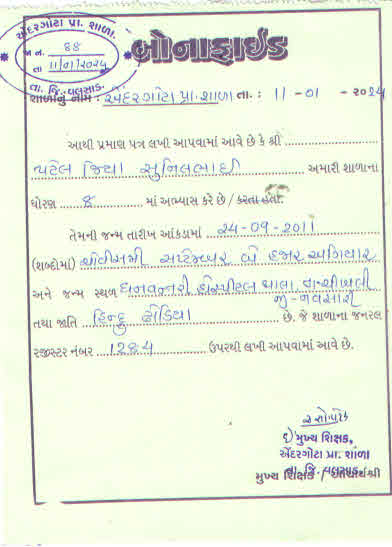 એંદરગોટા પ્રા. શાળા.
જા.નં. ૬૪
તા 11/01/2024
તા. જિ. વલસાડ.
બોનાફાઈડ
શાળાનું નામ : એંદરગોટા પ્રા. શાળા તા. : 11 - 01 - 2024
આથી પ્રમાણ પત્ર લખી આપવામાં આવે છે કે શ્રી
પટેલ જિયા સુનિલભાઈ અમારી શાળાના
ધોરણ ૭ માં અભ્યાસ કરે છે / કરતા હતા.
તેમની જન્મ તારીખ આંકડામાં 24-09-2011
(શબ્દોમાં) ચોવીસમી સપ્ટેમ્બર બે હજાર અગિયાર
અને જન્મ સ્થળ ધનવન્તરી હોસ્પીટલ થાલા, તા-ચીખલી
જી-નવસારી
તથા જાતિ હિન્દુ ઢોડિયા છે. જે શાળાના જનરલ
રજીસ્ટર નંબર 1284 ઉપરથી લખી આપવામાં આવે છે.
મુખ્ય શિક્ષક,
એંદરગોટા પ્રા. શાળા
તા. જિ. વલસાડ.
મુખ્ય શિક્ષક / આચાર્યશ્રી